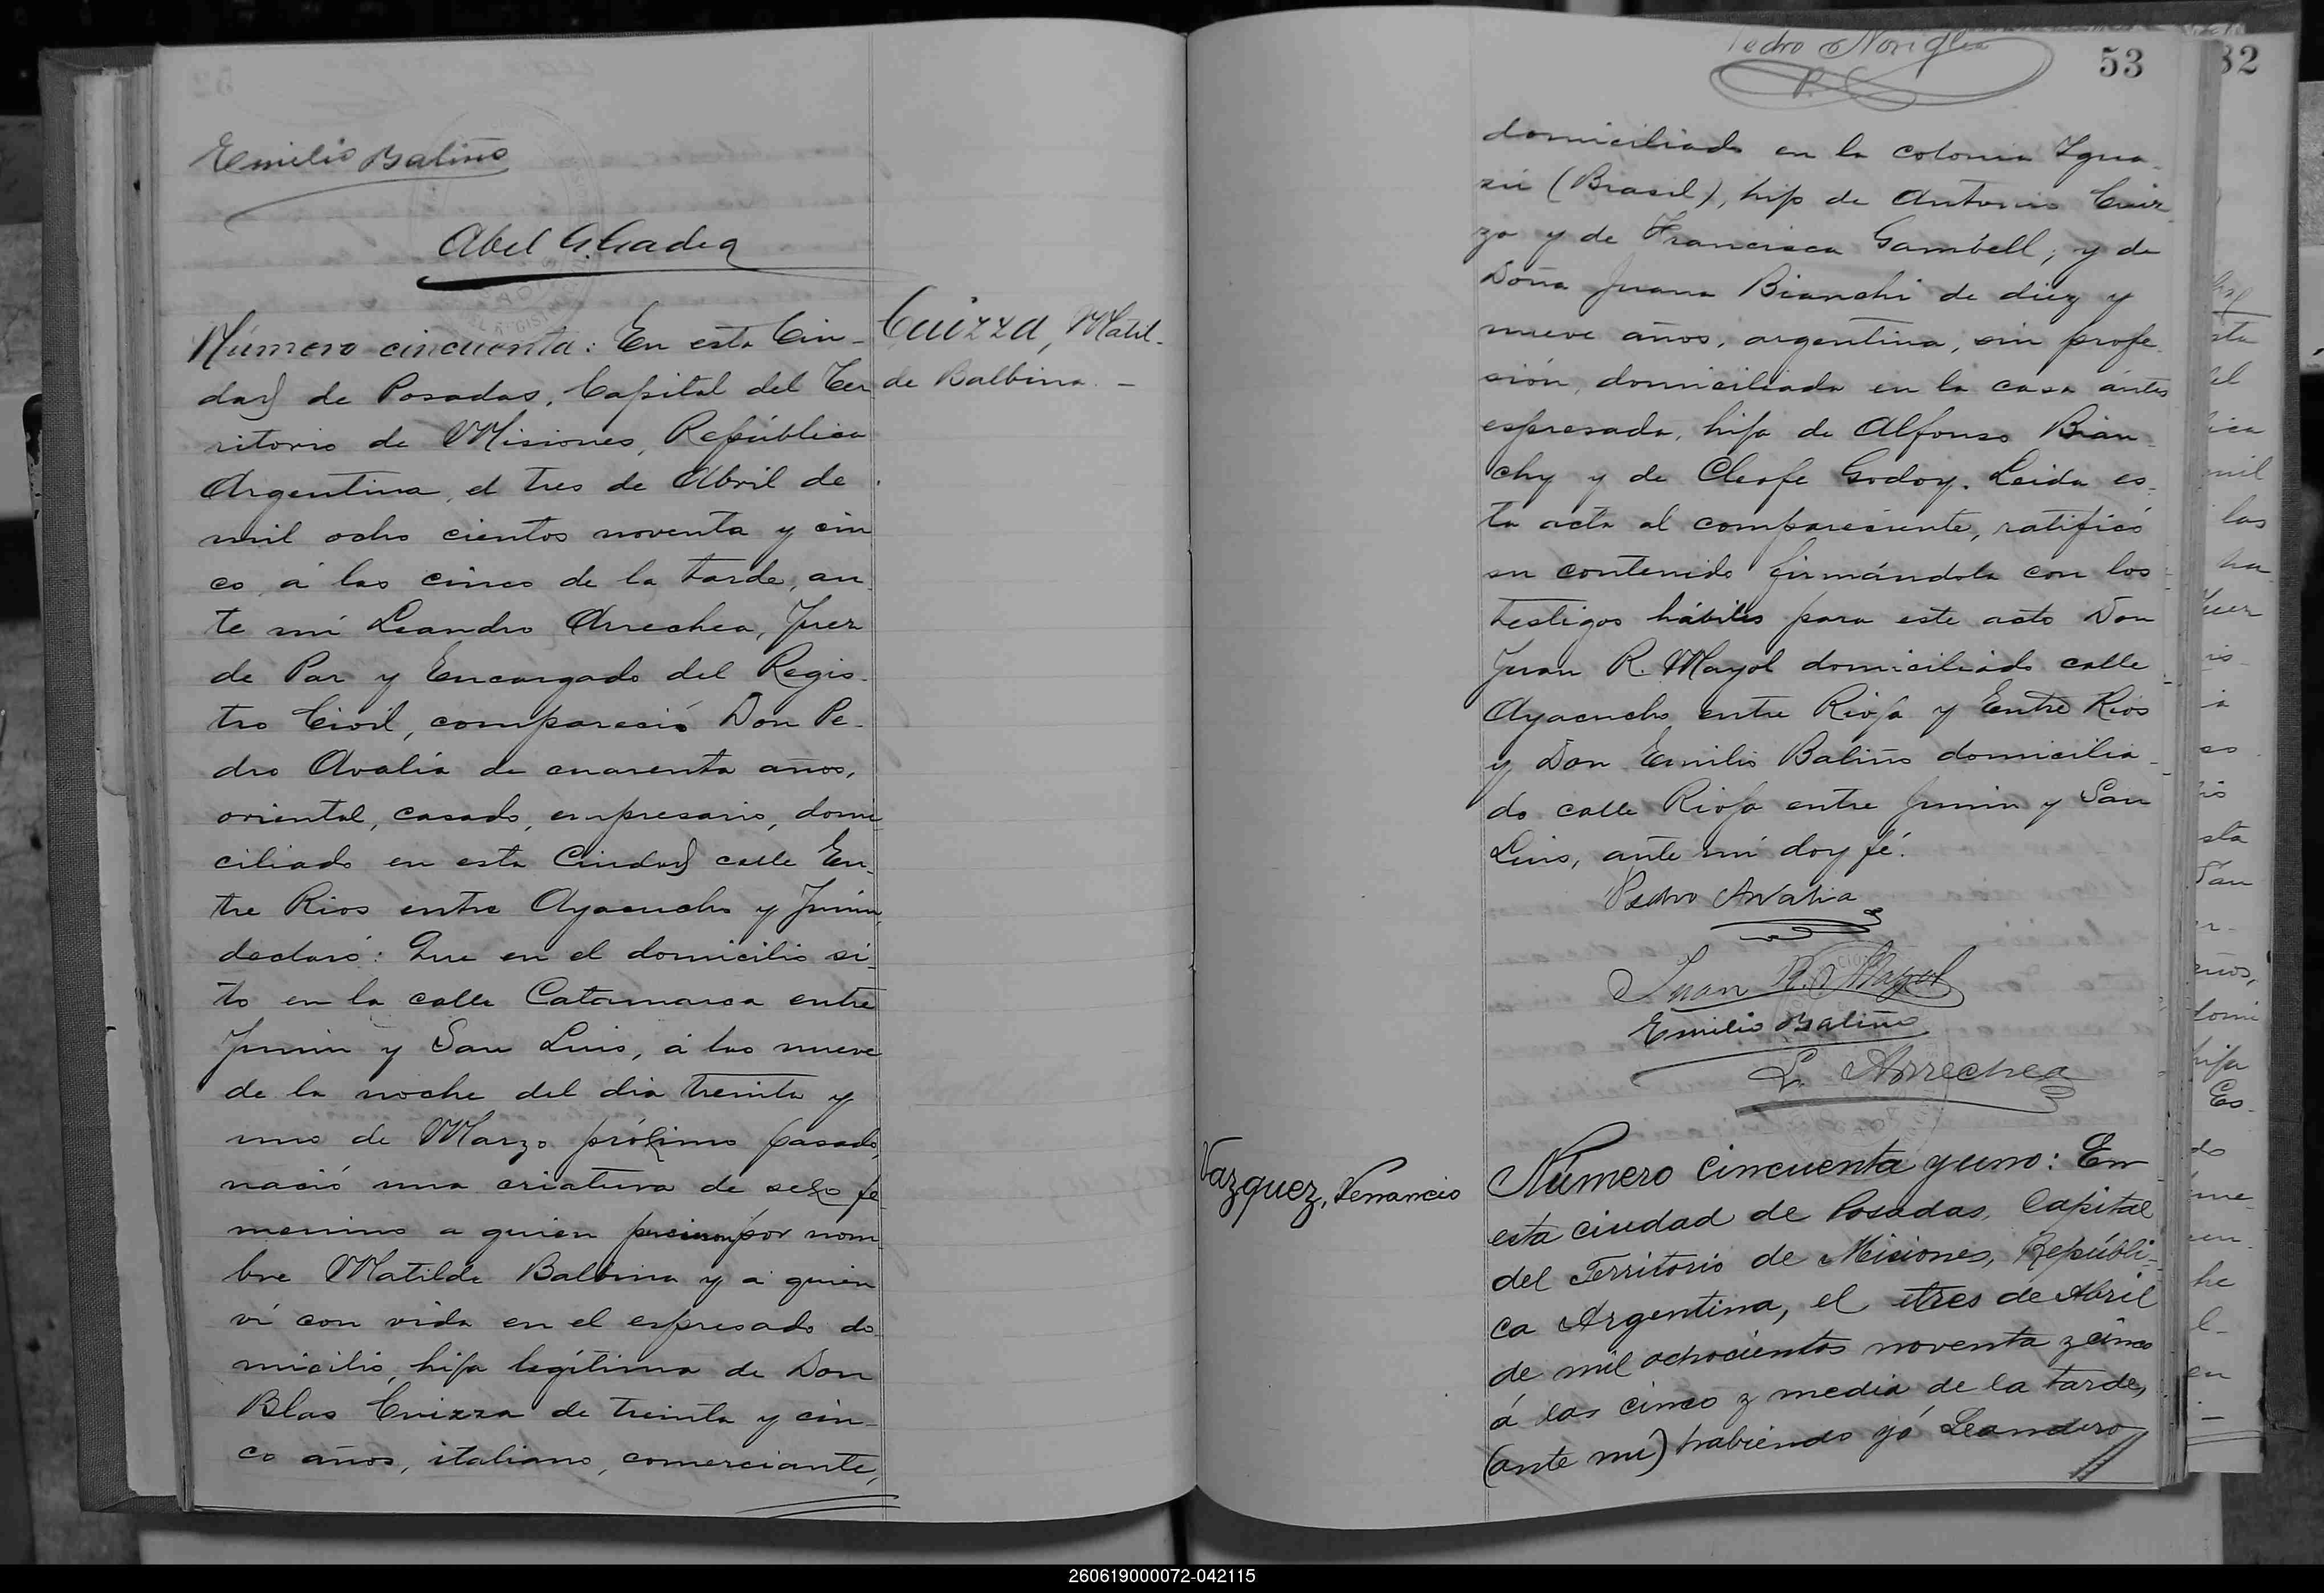 Emilio Baliño
Abel G. Gadea
Número cincuenta: En esta Ciu-
dad de Posadas, Capital del Ter
ritorio de Misiones, República
Argentina, el tres de Abril de
mil ocho cientos noventa y cin
co, á las cinco de la tarde, an
te mi Leandro Arrechea, Juez
de Paz y Encargado del Regis-
tro Civil, compareció Don Pe-
dro Avalia de cuarenta años,
oriental, casado, empresario, domi
ciliado en esta Ciudad calle En-
tre Rios entre Ayacucho y Junin,
declaró: Que en el domicilio si-
to en la calle Catamarca entre
Junin y San Luis, á las nueve
de la noche del dia treinta y
uno de Marzo próximo pasado,
nació una criatura de sexo fe
menino a quien pusieron por nom
bre Matilde Balbina y a quien
ví con vida en el espresado do
micilio, hija legítima de Don
Blas Cuizza de treinta y cin-
co años, italiano, comerciante,
Cuizza, Matil-
de Balbina. -
Pedro Noriglia
53
82
domiciliado en la colonia Igua-
zú (Brasil), hijo de Antonio Cuiz
za y de Francisca Gambell; y de
Doña Juana Bianchi de diez y
nueve años, argentina, sin profe-
sión, domiciliada en la casa ántes
espresada, hija de Alfonso Bian-
chy y de Cleofe Godoy. Leida es-
ta acta al compareciente, ratificó
su contenido firmándola con los
testigos hábiles para este acto Don
Juan R. Mayol domiciliado calle
Ayacucho entre Rioja y Entre Rios
y Don Emilio Baliño domicilia-
do calle Rioja entre Junin y San
Luis, ante mi doy fé.
Pedro Avalia
Juan R. Mayol
Emilio Baliño
L. Arrechea
Vazquez, Venancio
Número cincuenta y uno: En
esta ciudad de Posadas, Capital
del Territorio de Misiones, Repúbli-
ca Argentina, el tres de Abril
de mil ochocientos noventa y cinco
á las cinco y media de la tarde,
(ante mi) habiendo yó Leandro
260619000072-042115